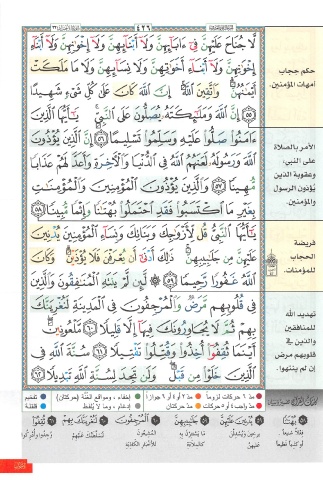 ٤٢٦
لَّا جُنَاحَ عَلَيْهِنَّ فِىٓ ءَابَآئِهِنَّ وَلَآ أَبْنَآئِهِنَّ وَلَآ إِخْوَٰنِهِنَّ وَلَآ أَبْنَآءِ
إِخْوَٰنِهِنَّ وَلَآ أَبْنَآءِ أَخَوَٰتِهِنَّ وَلَا نِسَآئِهِنَّ وَلَا مَا مَلَكَتْ
أَيْمَٰنُهُنَّ وَٱتَّقِينَ ٱللَّهَ إِنَّ ٱللَّهَ كَانَ عَلَىٰ كُلِّ شَىْءٍ شَهِيدًا
٥٥ إِنَّ ٱللَّهَ وَمَلَٰٓئِكَتَهُۥ يُصَلُّونَ عَلَى ٱلنَّبِىِّ يَٰٓأَيُّهَا ٱلَّذِينَ
ءَامَنُوا۟ صَلُّوا۟ عَلَيْهِ وَسَلِّمُوا۟ تَسْلِيمًا ٥٦ إِنَّ ٱلَّذِينَ يُؤْذُونَ
ٱللَّهَ وَرَسُولَهُۥ لَعَنَهُمُ ٱللَّهُ فِى ٱلدُّنْيَا وَٱلْءَاخِرَةِ وَأَعَدَّ لَهُمْ عَذَابًا
مُّهِينًا ٥٧ وَٱلَّذِينَ يُؤْذُونَ ٱلْمُؤْمِنِينَ وَٱلْمُؤْمِنَٰتِ
بِغَيْرِ مَا ٱكْتَسَبُوا۟ فَقَدِ ٱحْتَمَلُوا۟ بُهْتَٰنًا وَإِثْمًا مُّبِينًا ٥٨
يَٰٓأَيُّهَا ٱلنَّبِىُّ قُل لِّأَزْوَٰجِكَ وَبَنَاتِكَ وَنِسَآءِ ٱلْمُؤْمِنِينَ يُدْنِينَ
عَلَيْهِنَّ مِن جَلَٰبِيبِهِنَّ ذَٰلِكَ أَدْنَىٰٓ أَن يُعْرَفْنَ فَلَا يُؤْذَيْنَ وَكَانَ
ٱللَّهُ غَفُورًا رَّحِيمًا ٥٩ لَّئِن لَّمْ يَنتَهِ ٱلْمُنَٰفِقُونَ وَٱلَّذِينَ
فِى قُلُوبِهِم مَّرَضٌ وَٱلْمُرْجِفُونَ فِى ٱلْمَدِينَةِ لَنُغْرِيَنَّكَ
بِهِمْ ثُمَّ لَا يُجَاوِرُونَكَ فِيهَآ إِلَّا قَلِيلًا ٦٠ مَّلْعُونِينَ
أَيْنَمَا ثُقِفُوٓا۟ أُخِذُوا۟ وَقُتِّلُوا۟ تَقْتِيلًا ٦١ سُنَّةَ ٱللَّهِ فِى
ٱلَّذِينَ خَلَوْا۟ مِن قَبْلُ وَلَن تَجِدَ لِسُنَّةِ ٱللَّهِ تَبْدِيلًا ٦٢
حكم حجاب
أمهات المؤمنين.
الأمر بالصلاة
على النبي،
وعقوبة الذين
يؤذون الرسول
والمؤمنين.
فريضة
الحجاب
للمؤمنات.
تهديد الله
للمنافقين
والذين في
قلوبهم مرض
إن لم ينتهوا.
مد ٦ حركات لزوماً
مد ٢ أو ٤ أو ٦ جوازاً
إخفاء، ومواقع الغنّة (حركتان)
تفخيم
مد واجب ٤ أو ٥ حركات
مد حركتان
إدغام، وما لا يُلفظ
قلقلة